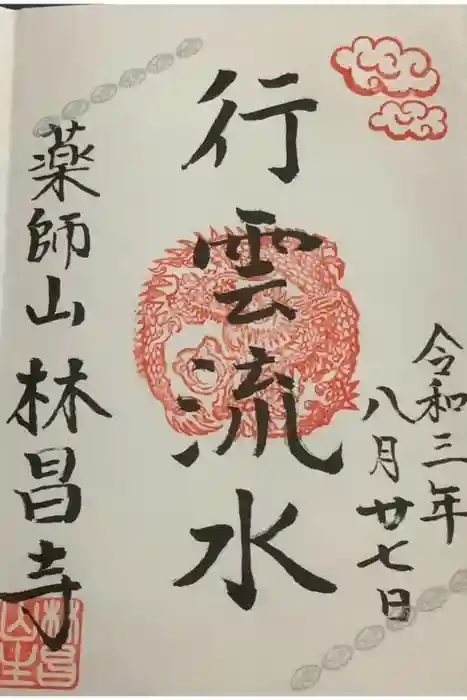 令和三年
八月廿七日
行雲流水
薬師山林昌寺